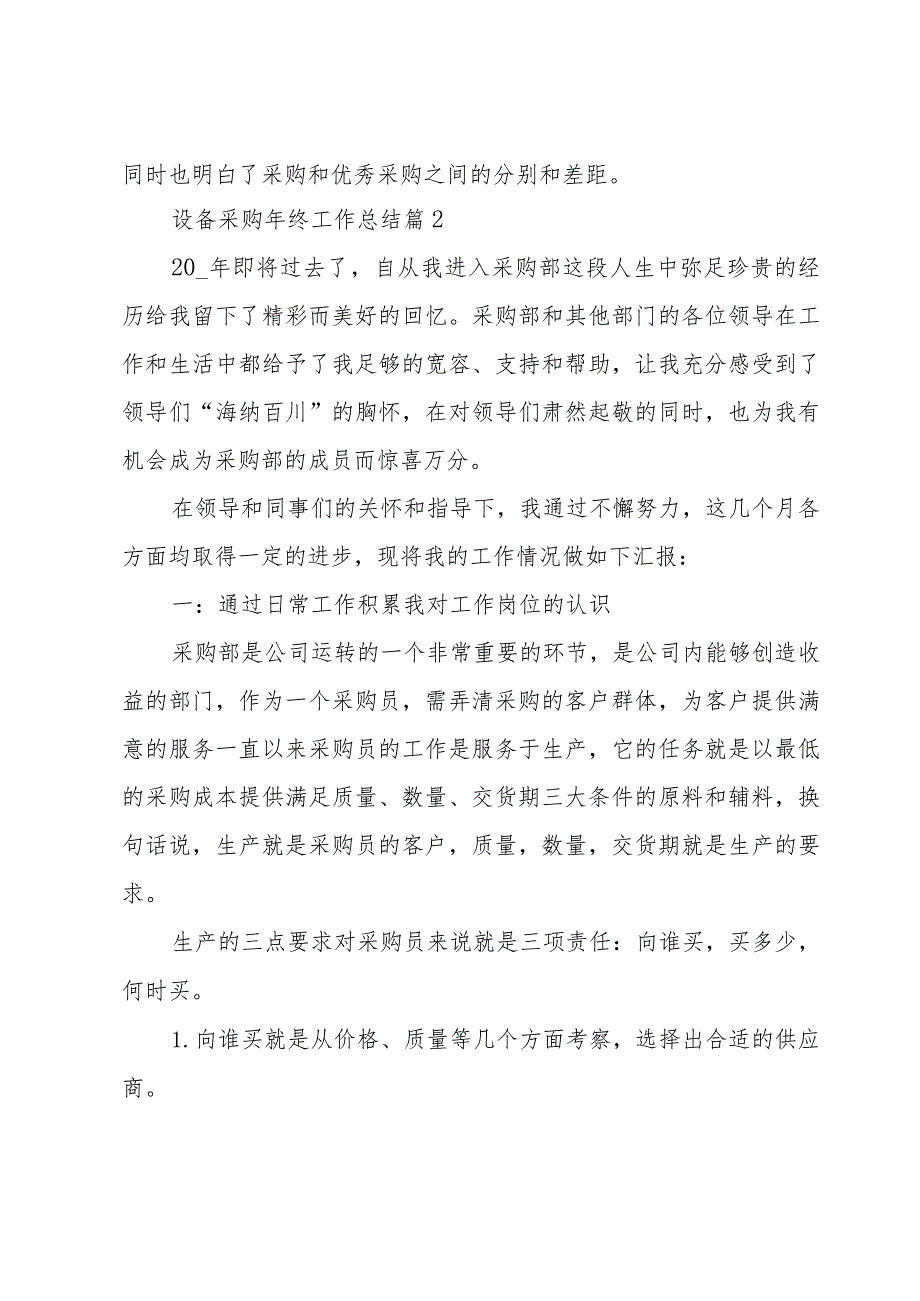 同时也明白了采购和优秀采购之间的分别和差距。
设备采购年终工作总结篇2
20_年即将过去了，自从我进入采购部这段人生中弥足珍贵的经
历给我留下了精彩而美好的回忆。采购部和其他部门的各位领导在工
作和生活中都给予了我足够的宽容、支持和帮助，让我充分感受到了
领导们“海纳百川”的胸怀，在对领导们肃然起敬的同时，也为我有
机会成为采购部的成员而惊喜万分。
在领导和同事们的关怀和指导下，我通过不懈努力，这几个月各
方面均取得一定的进步，现将我的工作情况做如下汇报：
一：通过日常工作积累我对工作岗位的认识
采购部是公司运转的一个非常重要的环节，是公司内能够创造收
益的部门，作为一个采购员，需弄清采购的客户群体，为客户提供满
意的服务一直以来采购员的工作是服务于生产，它的任务就是以最低
的采购成本提供满足质量、数量、交货期三大条件的原料和辅料，换
句话说，生产就是采购员的客户，质量，数量，交货期就是生产的要
求。
生产的三点要求对采购员来说就是三项责任：向谁买，买多少，
何时买。
1.向谁买就是从价格、质量等几个方面考察，选择出合适的供应
商。